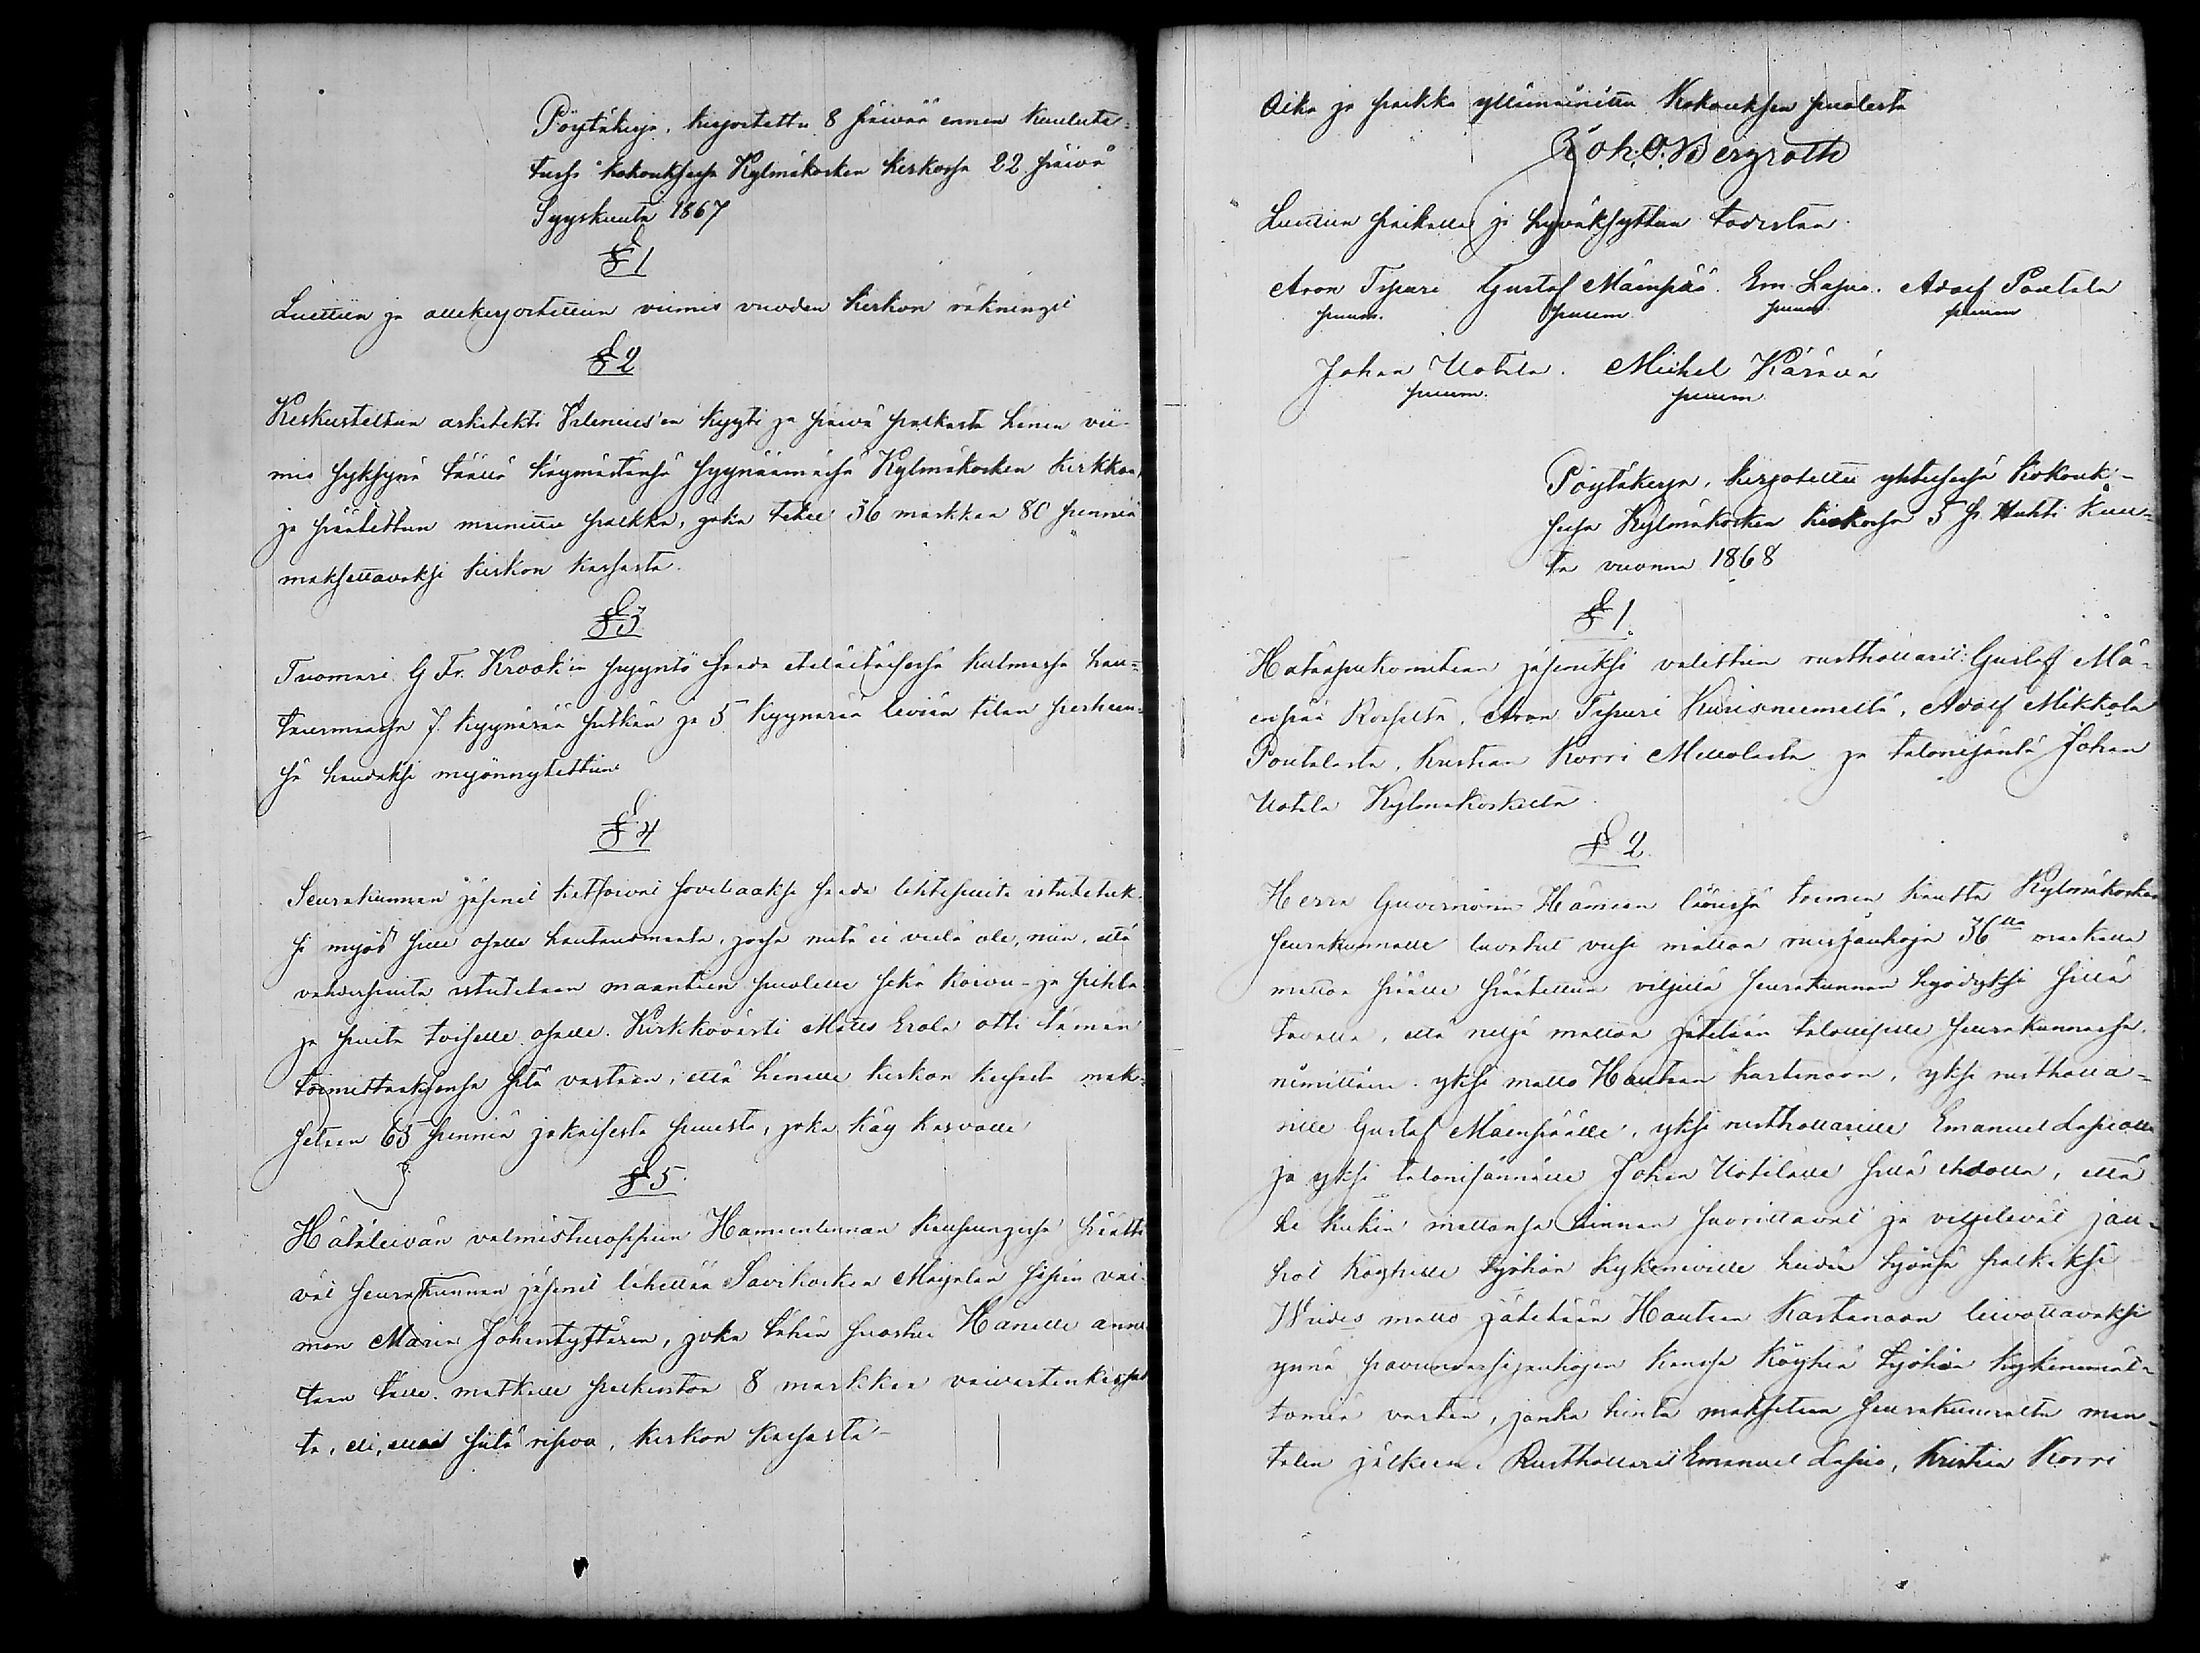 Pöytäkirja, kirjoitettu 8 päivää ennen kuulute-
tussa kokouksessa Kylmäkosken kirkossa 22 päivä
Syyskuuta 1867
§ 1
Luettiin ja allekirjoitettiin viimis vuoden kirkon räkningit
§ 2
Keskusteltiin arkitekti Valenius'en kyyti ja päivä palkasta hänen vii-
mis syksynä täällä käymästänsä syynäämässä Kylmäkosken kirkkoa,
ja päätettiin mainittu palkka, joka tekee 36 markkaa 80 penniä
maksettavaksi kirkon kassasta.
§ 3
Tuomari G Fr. Krook'in pyyntö saada eteläitäisessä kulmassa hau-
tausmaassa 7 kyynärää pitkän ja 5 kyynärää leviän tilan perheen-
sä haudaksi myönnytettiin
§ 4
Seurakunnan jäsenet katsoivat soveliaaksi saada lehtipuita istutetuk-
si myös sille osalle hautausmaata, jossa niitä ei vielä ole, niin, että
vahderpuita istutetaan maantien puolelle sekä koivu- ja pihla-
ja puita toiselle osalle. Kirkkovärti Matts Erola otti tämän
toimittaaksensa sitä vastaan, että hänelle kirkon kassasta mak-
setaan 65 penniä jokaisesta puusta, joka käy kasvolle
§ 5
Hätäleivän valmistusoppiin Hämeenlinnan kaupungissa päätti-
vät seurakunnan jäsenet lähettää Savikosken Mäkelän sepän vai-
mon Maria Johantyttären, joka tähän suostui Hänelle anne-
taan tälle matkalle palkintoa 8 markkaa vaivastenkassas-
ta, eli, ellei siitä riipoa, kirkon kassasta
Aika ja paikka yllämainittu Kokouksen puolesta
Joh. O. Bergroth
Luettiin paikalla ja hyväksyttiin todistaa
Aron Typuri Gustaf Mäenpää. Em. Lapio. Adolf Pontela
puum. puum. puum. puum
Johan Uotila. Michel Kärävä
puum. puum.
Pöytäkirja, kirjotettu yhteisessä kokouk-
sessa Kylmäkosken kirkossa 5 p. Huhti kuu-
ta vuonna 1868
§ 1.
Hätäapukomitean jäseniksi valittiin rusthollarit: Gustaf Mä-
enpää Kossilta, Aron Typuri Kurisniemeltä, Adolf Mikkola
Pontelasta, Kustaa Korri Mellolasta ja talonisäntä Johan
Uotila Kylmäkoskelta
§ 2.
Herra Guvernörin Hämeen läänissä toimen kautta Kylmäkosken
seurakunnalle luvatut viisi mattoa ruisjauhoja 36lla markalla
matto päälle päätettiin viljellä seurakunnan hyödyksi sillä
tavalla, että neljä mattoa jätetään talollisille seurakunnassa.
nimittäin: yksi matto Hautaan kartanoon, yksi rustholla-
rille Gustaf Mäenpäälle, yksi rusthollarille Emanuel Lapiolle
ja yksi talonisännälle Johan Uotilalle sillä ehdolla, että
he kukin mattonsa hinnan suorittavat ja viljelevät jau-
hot köyhille työhön kykeneville heidän työnsä palkaksi
Wiides matto jätetään Hautaan Kartanoon leivottavaksi
ynnä kanssa köyhiä työhön kykenemät-
tömiä varten, jonka hinta maksetaan seurakunnalta man-
talin jälkeen. Rusthollarit Emanuel Lapio, Kristian Korri